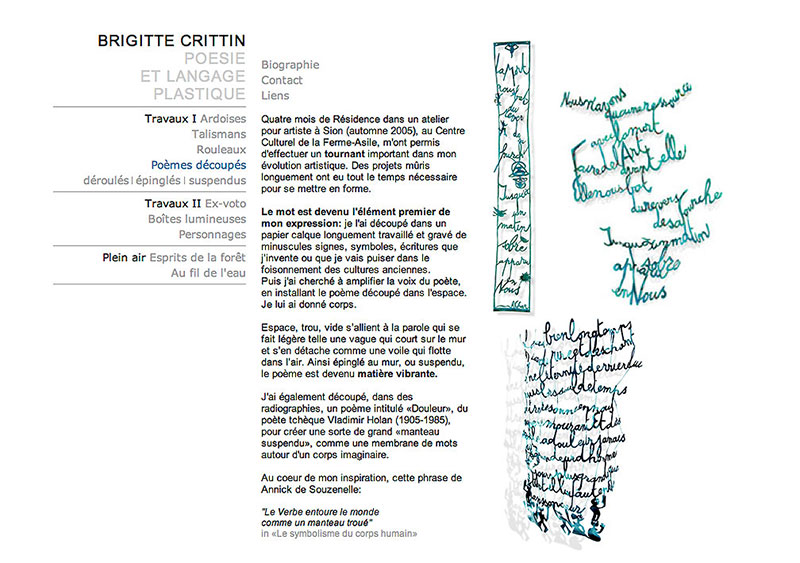 BRIGITTE CRITTIN
POESIE
ET LANGAGE
PLASTIQUE
Travaux I Ardoises
Talismans
Rouleaux
Poèmes découpés
déroulés | épinglés | suspendus
Travaux II Ex-voto
Boîtes lumineuses
Personnages
Plein air Esprits de la forêt
Au fil de l'eau
Biographie
Contact
Liens
Quatre mois de Résidence dans un atelier
pour artiste à Sion (automne 2005), au Centre
Culturel de la Ferme-Asile, m'ont permis
d'effectuer un tournant important dans mon
évolution artistique. Des projets mûris
longuement ont eu tout le temps nécessaire
pour se mettre en forme.
Le mot est devenu l'élément premier de
mon expression: je l'ai découpé dans un
papier calque longuement travaillé et gravé de
minuscules signes, symboles, écritures que
j'invente ou que je vais puiser dans le
foisonnement des cultures anciennes.
Puis j'ai cherché à amplifier la voix du poète,
en installant le poème découpé dans l'espace.
Je lui ai donné corps.
Espace, trou, vide s'allient à la parole qui se
fait légère telle une vague qui court sur le mur
et s'en détache comme une voile qui flotte
dans l'air. Ainsi épinglé au mur, ou suspendu,
le poème est devenu matière vibrante.
J'ai également découpé, dans des
radiographies, un poème intitulé «Douleur», du
poète tchèque Vladimir Holan (1905-1985),
pour créer une sorte de grand «manteau
suspendu», comme une membrane de mots
autour d'un corps imaginaire.
Au coeur de mon inspiration, cette phrase de
Annick de Souzenelle:
"Le Verbe entoure le monde
comme un manteau troué"
in «Le symbolisme du corps humain»
la mort
nous
Jusque
un
matin
sobre
apparu
en
Nous
Nous n'avons
aucune ressource
avec la mort
Faire de l'Art
avant elle
Elle nous bat
du revers
de sa fourche
Jusqu'à un matin
sobre
en Nous
bien longtemps